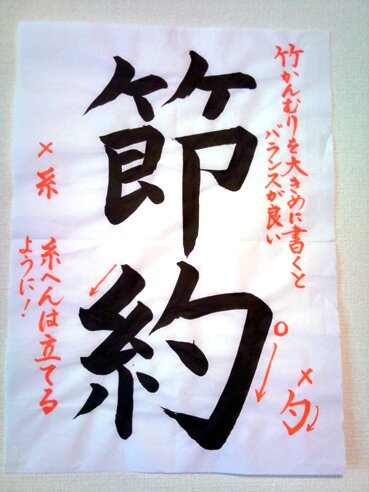 竹かんむりを大きめに書くと
バランスが良い
節約
○
×勺
×糸
糸へんは立てる
ように!